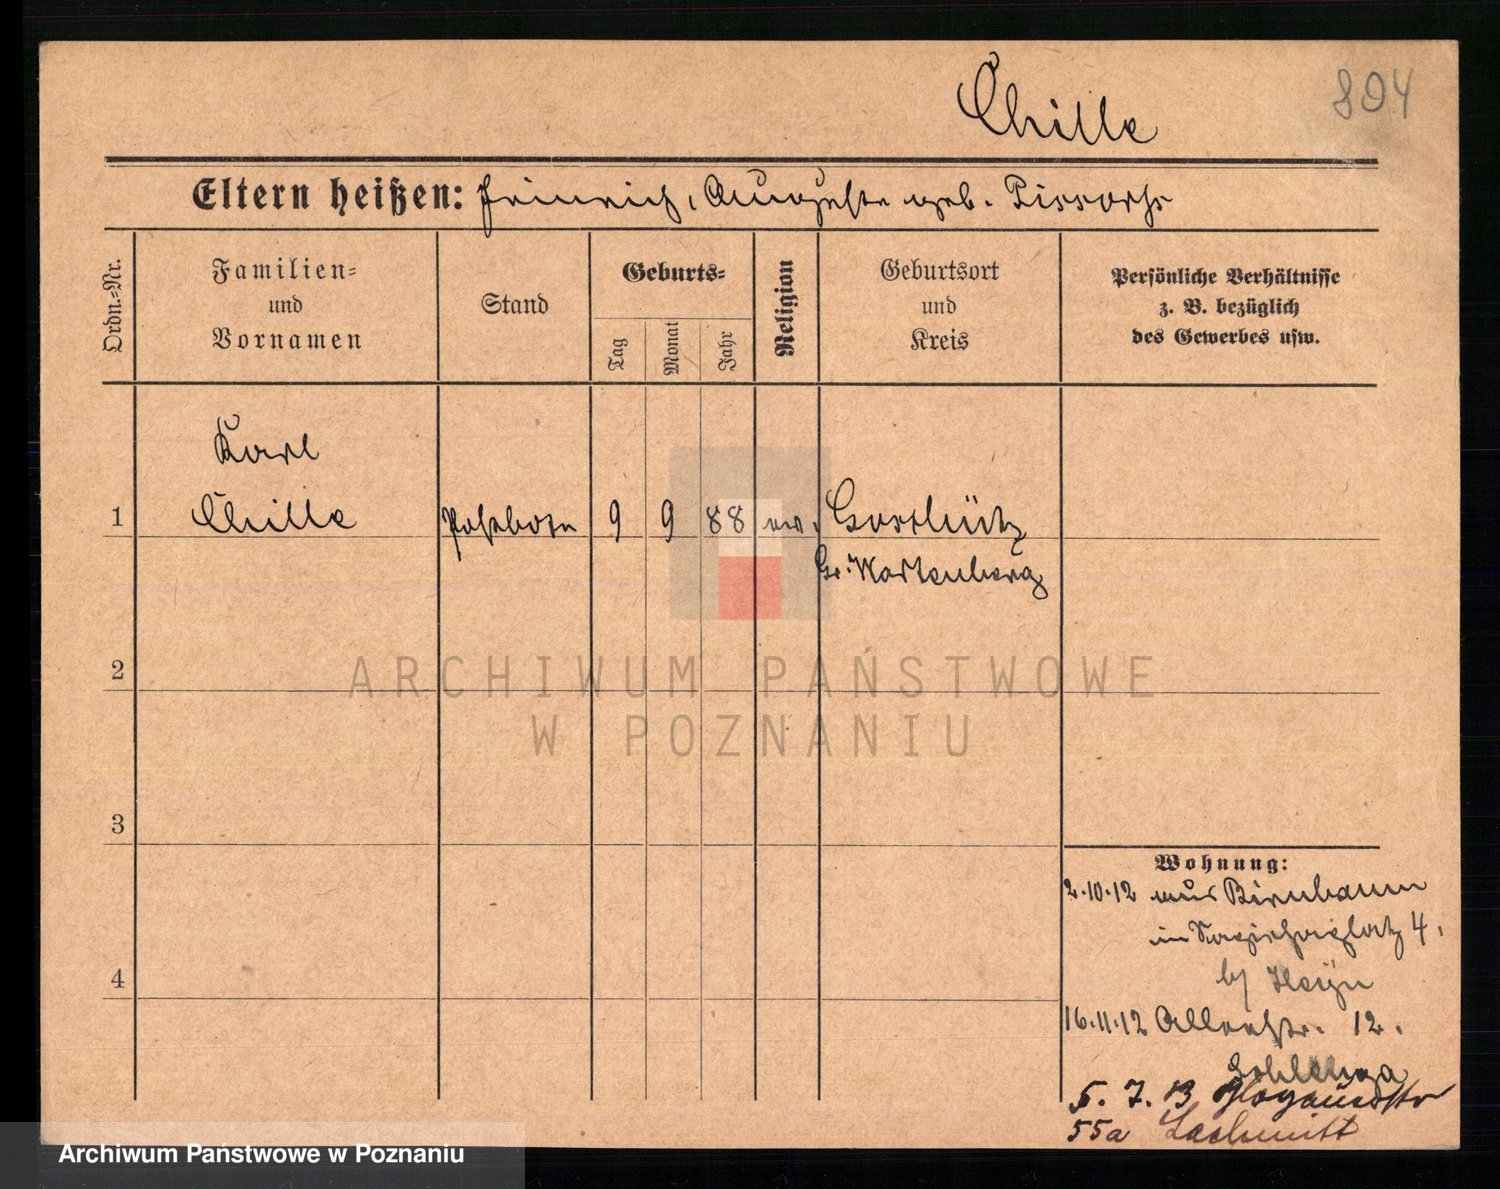 Chille
804
Eltern heißen: Heinrich, Auguste geb. Pissarz
Ordn.-Nr.
Familien-
und
Vornamen
Stand
Geburts-
Tag
Monat
Jahr
Religion
Geburtsort
und
Kreis
Persönliche Verhältnisse
z. B. bezüglich
des Gewerbes usw.
Karl
1 Chille Postbote 9 9 88 ev.
Gr. Wartenberg
2
3
4
Wohnung:
2.10.12 aus Birnbaum
in Sapiehaplatz 4.
bj Heyn
16.11.12 12.
5. 7. 13 Glogauerstr
55a
ARCHIWUM PAŃSTWOWE
W POZNANIU
Archiwum Państwowe w Poznaniu